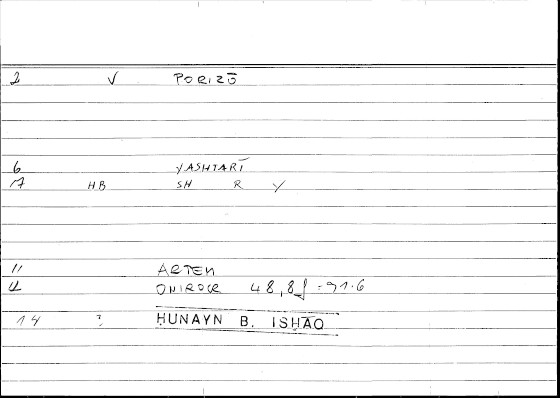 2 V PORIZŌ
6 YASHTARĪ
17 HB SH R Y
11 ARTEM
12 ONIROCR 48,8f = 91.6
14 ? ḤUNAYN B. ISḤĀQ